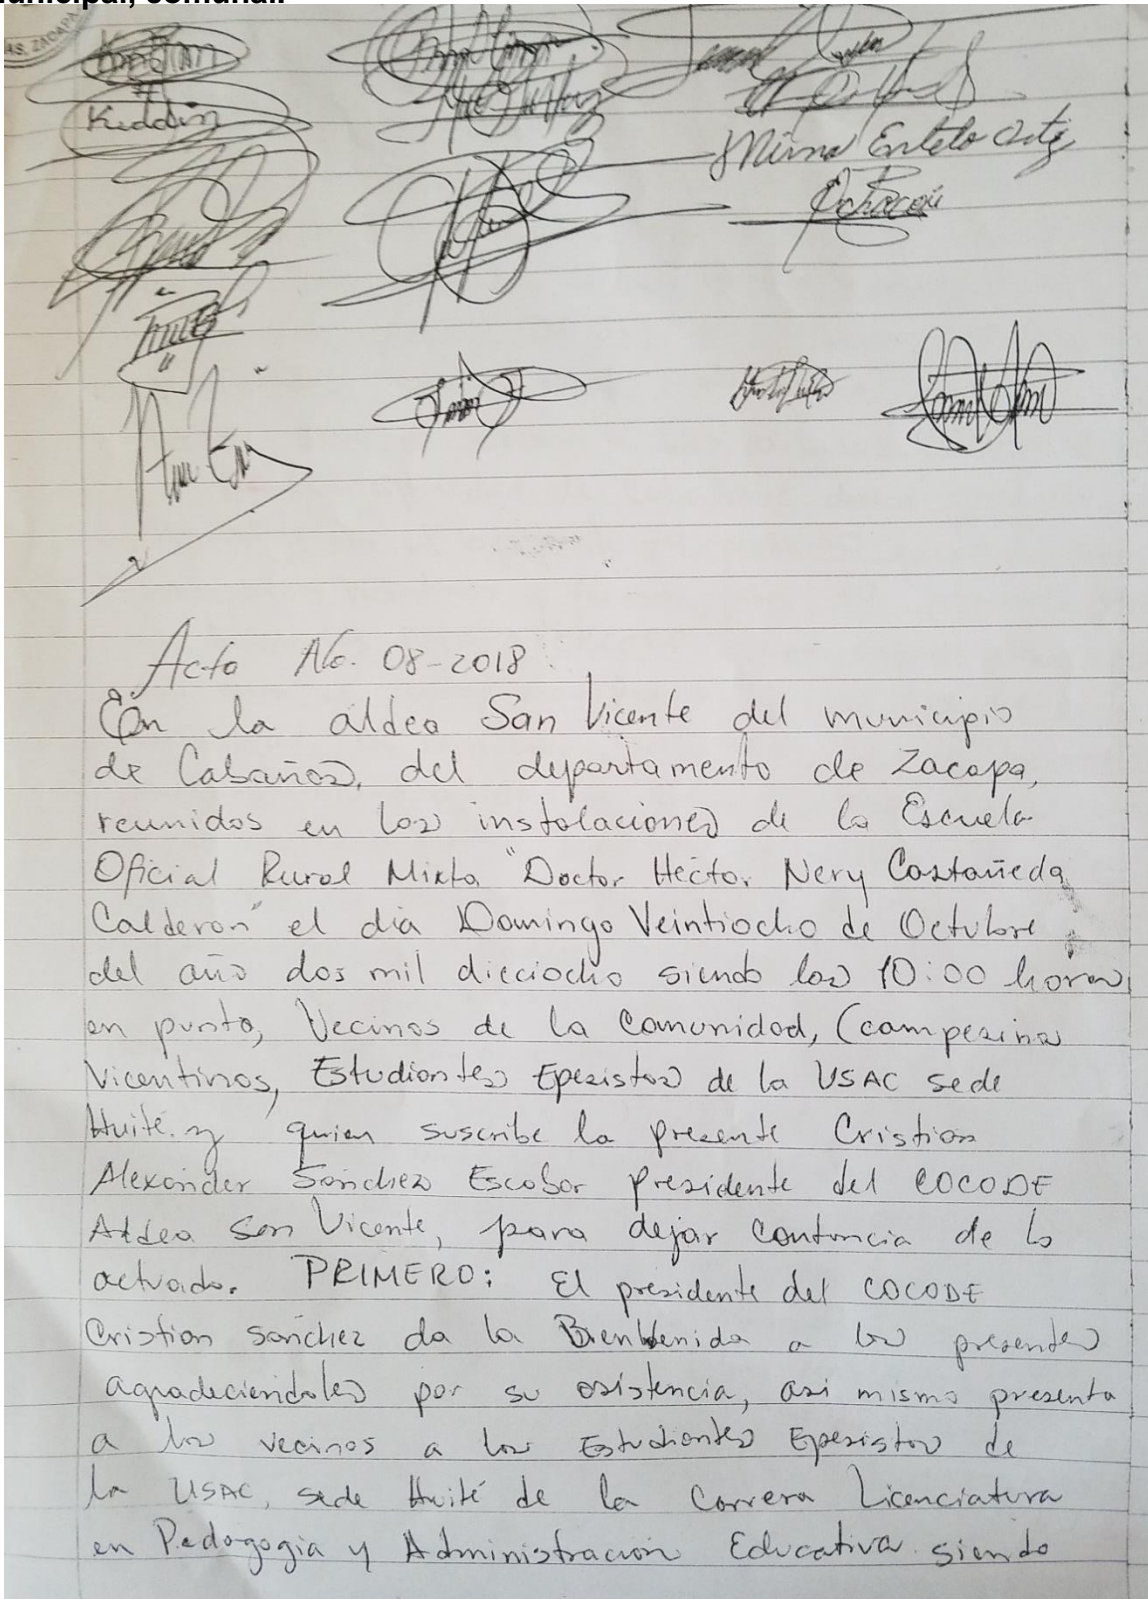 Municipal, comunal.
AS, ZACAPA
Kristian
Kiddin
Mirna Estela Ortiz
Acta No. 08-2018
En la aldea San Vicente del municipio
de Cabañas, del departamento de Zacapa,
reunidos en las instalaciones de la Escuela
Oficial Rural Mixta "Doctor Héctor Nery Castañeda
Calderon" el día Domingo Veintiocho de Octubre
del año dos mil dieciocho siendo las 10:00 horas
en punto, Vecinos de la Comunidad, (campesinos
Vicentinos, Estudiantes Epesistas de la USAC sede
Huité. y quien suscribe la presente Cristian
Alexander Sánchez Escobar presidente del COCODE
Aldea San Vicente, para dejar contancia de lo
actuado. PRIMERO: El presidente del COCODE
Cristian Sánchez da la Bienvenida a los presentes
agradeciendoles por su asistencia, asi mismo presenta
a los vecinos a los Estudiantes Epesistas de
la USAC, sede Huité de la Carrera Licenciatura
en Pedagogia y Administración Educativa siendo